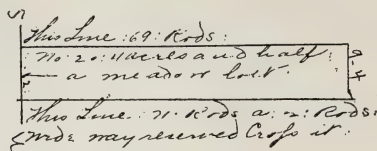 S
this Line : 69 : Rods :
No : 20 : 4 acres and half :
a meadow lott .
9-4
This Line . 71 . Rods a : 2 : Rods :
wide way reserved Cross it :